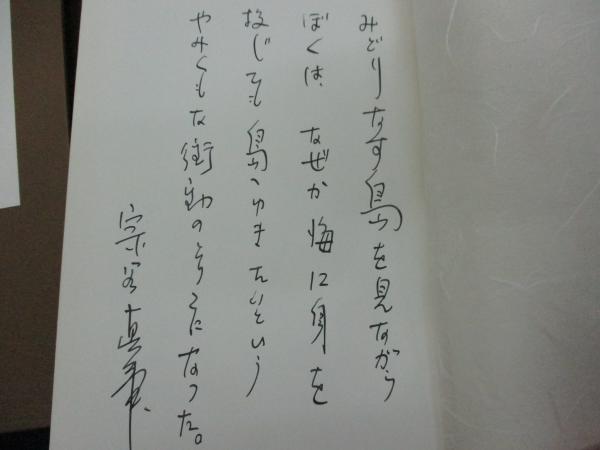 みどりなす島を見ながら
ぼくは、なぜか海に身を
投じても島へゆきたいという
やみくもな衝動のとりこになった。
宗谷真爾